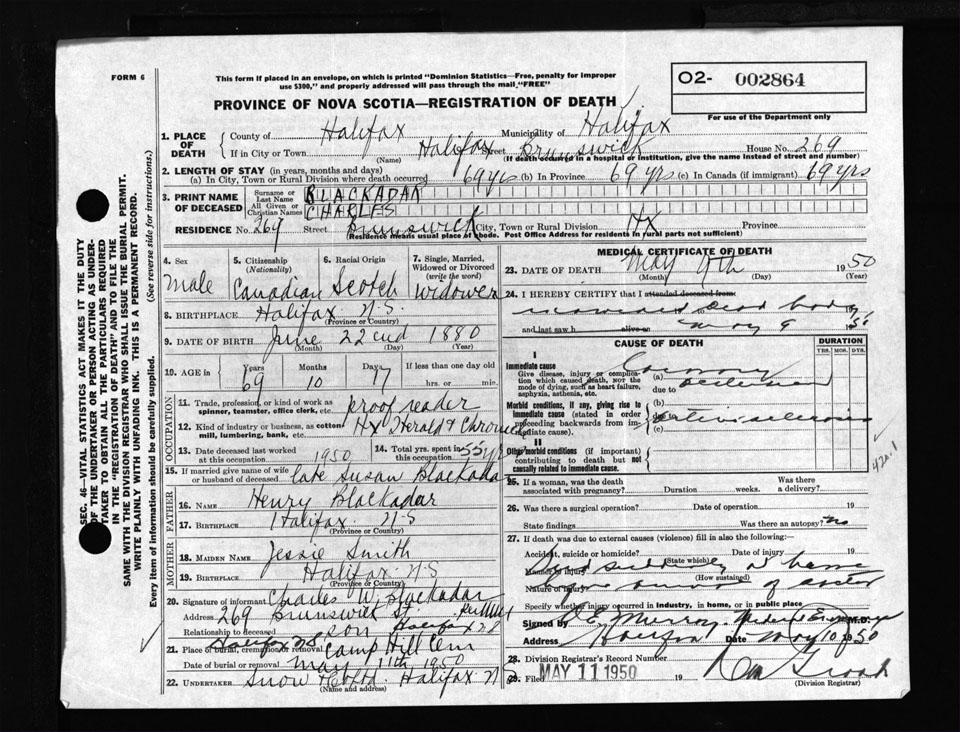 FORM 6
This form if placed in an envelope, on which is printed "Dominion Statistics—Free, penalty for improper
use $300," and properly addressed will pass through the mail "FREE"
O2- 002864
For use of the Department only
PROVINCE OF NOVA SCOTIA—REGISTRATION OF DEATH
1. PLACE OF DEATH
County of Halifax Municipality of Halifax
If in City or Town Halifax Street Brunswick House No. 269
(Name) (If death occurred in a hospital or institution, give the name instead of street and number)
2. LENGTH OF STAY (in years, months and days)
(a) In City, Town or Rural Division where death occurred 69 yrs (b) In Province 69 yrs (c) In Canada (if immigrant) 69 yrs
3. PRINT NAME OF DECEASED
Surname or Last Name BLACKADAR
All Given or Christian Names CHARLES
RESIDENCE No. 269 Street Brunswick City, Town or Rural Division HX Province
(Residence means usual place of abode. Post Office Address for residents in rural parts not sufficient)
4. Sex 5. Citizenship (Nationality) 6. Racial Origin 7. Single, Married, Widowed or Divorced (write the word)
Male Canadian Scotch Widower
8. BIRTHPLACE Halifax N.S.
(Province or Country)
9. DATE OF BIRTH June 22nd 1880
(Month) (Day) (Year)
10. AGE in Years Months Days If less than one day old
69 10 17 hrs. or min.
OCCUPATION
11. Trade, profession, or kind of work as spinner, teamster, office clerk, etc. proof reader
12. Kind of industry or business, as cotton mill, lumbering, bank, etc. Hx Herald & Chronicle
13. Date deceased last worked at this occupation 1950 14. Total yrs. spent in this occupation 55 yrs
15. If married give name of wife or husband of deceased late Susan Blackadar
FATHER
16. NAME Henry Blackadar
17. BIRTHPLACE Halifax N.S
(Province or Country)
MOTHER
18. MAIDEN NAME Jessie Smith
19. BIRTHPLACE Halifax N.S
(Province or Country)
20. Signature of informant Charles W. Blackadar
Address 269 Brunswick St.
Halifax N.S
Relationship to deceased son
Halifax N.S
21. Place of burial, cremation or removal Camp Hill Cem
Date of burial or removal May 11th 1950
22. UNDERTAKER Snow & Co Ltd. Halifax N
(Name and address)
MEDICAL CERTIFICATE OF DEATH
23. DATE OF DEATH May 9th 1950
(Month) (Day)
24. I HEREBY CERTIFY that I attended deceased from:
dead body 19
and last saw h alive on May 9 1950
CAUSE OF DEATH
DURATION
YRS. MOS. DYS.
I
Immediate cause
Give disease, injury or complication which caused death, not the mode of dying, such as heart failure, asphyxia, asthenia, etc.
(a) Coronary
due to occlusion
Morbid conditions, if any, giving rise to immediate cause (stated in order proceeding backwards from immediate cause).
(b)
due to
(c)
II
Other morbid conditions (if important) contributing to death but not causally related to immediate cause.
25. If a woman, was the death associated with pregnancy? Duration weeks. Was there a delivery?
26. Was there a surgical operation? Date of operation 19
State findings Was there an autopsy? no
27. If death was due to external causes (violence) fill in also the following:—
Accident, suicide or homicide? Date of injury 19
(State which)
Manner of injury Died suddenly at home
(How sustained)
Nature of injury
Specify whether injury occurred in industry, in home, or in public place
Signed by Murray Medical Examiner M.D.
Address Halifax Date May 10 1950
28. Division Registrar's Record Number
29. Filed MAY 11 1950 19
(Division Registrar)
SEC. 46—VITAL STATISTICS ACT MAKES IT THE DUTY
OF THE UNDERTAKER OR PERSON ACTING AS UNDER-
TAKER TO OBTAIN ALL THE PARTICULARS REQUIRED
IN THE "REGISTRATION OF DEATH" AND TO FILE THE
SAME WITH THE DIVISION REGISTRAR WHO SHALL ISSUE THE BURIAL PERMIT.
WRITE PLAINLY WITH UNFADING INK. THIS IS A PERMANENT RECORD.
Every item of information should be carefully supplied. (See reverse side for instructions.)